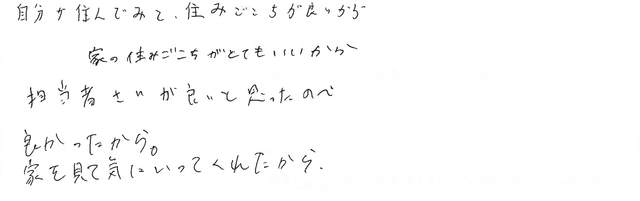 自分が住んでみて、住みごこちが良いから
家の住みごこちがとてもいいから
担当者さんが良いと思ったので
良かったから。
家を見て気にいってくれたから.